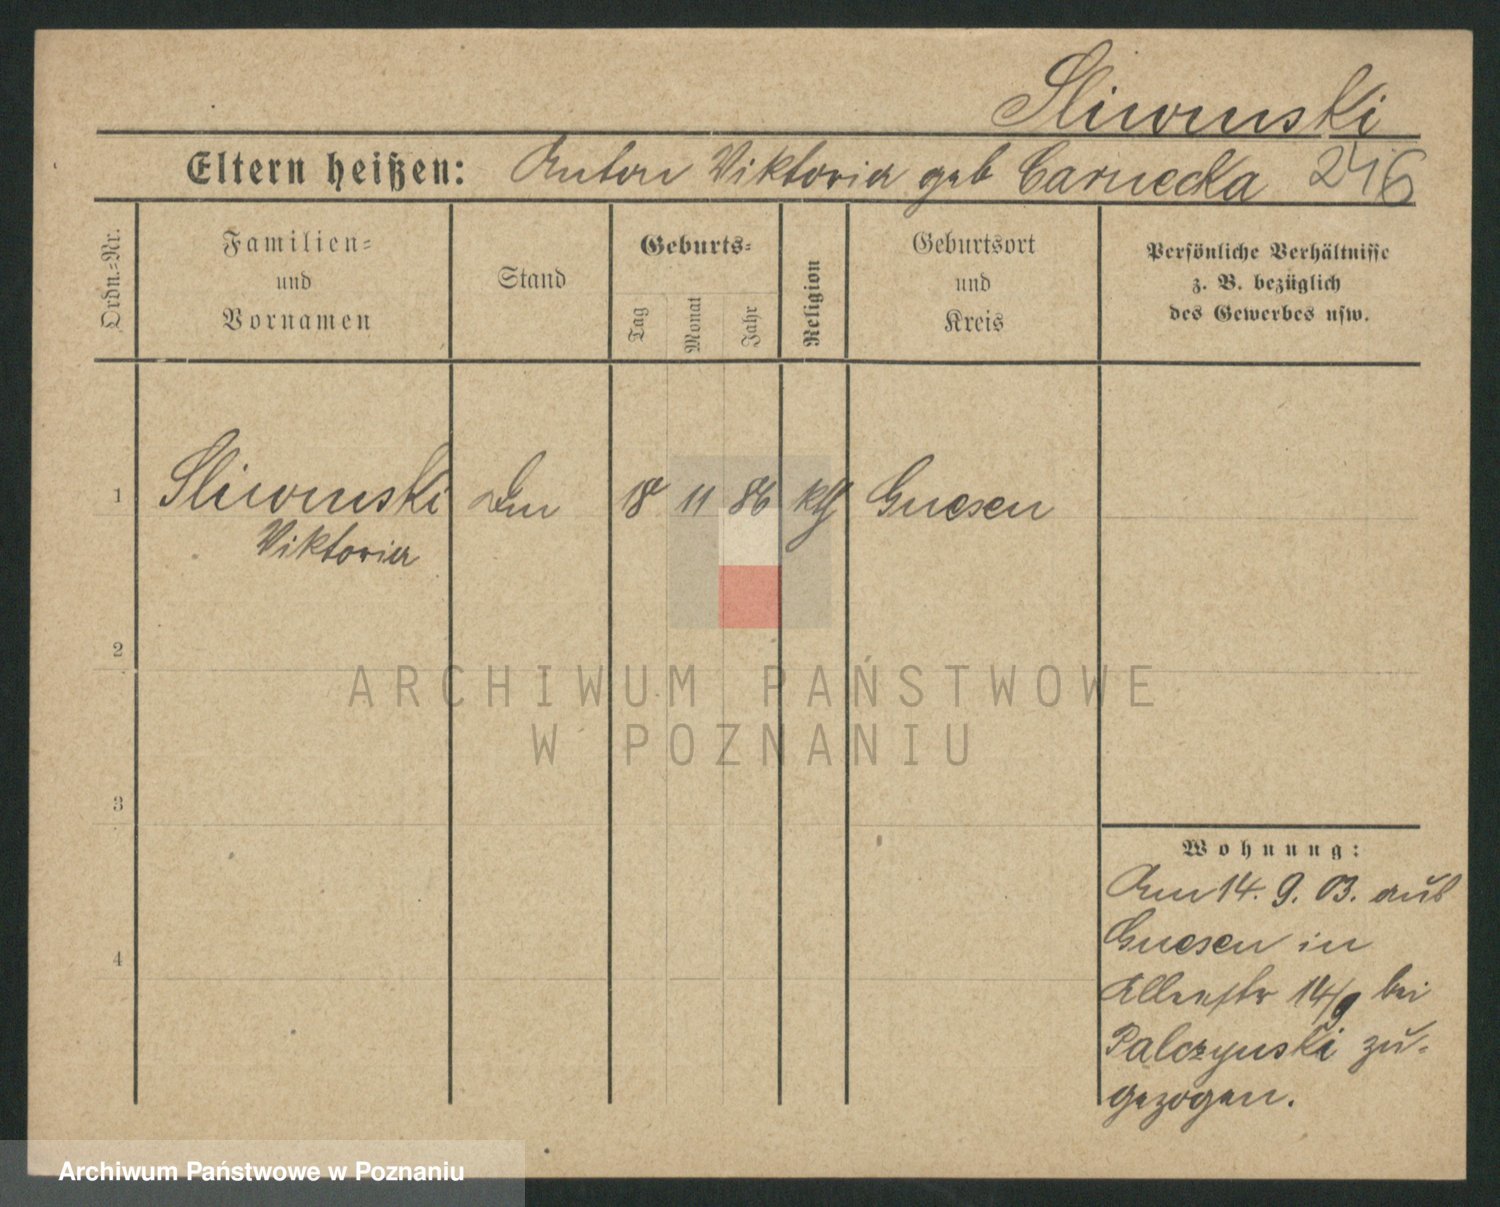 Sliwinski
Eltern heißen: Anton Viktoria geb Carnecka 246
Ordn.-Nr.
Familien-
und
Vornamen
Stand
Geburts-
Tag
Monat
Jahr
Religion
Geburtsort
und
Kreis
Persönliche Verhältnisse
z. B. bezüglich
des Gewerbes usw.
1 Sliwinski 18 11 86 kth Gnesen
Viktoria
2
ARCHIWUM PAŃSTWOWE
W POZNANIU
3
Wohnung:
Am 14. 9. 03. aus
Gnesen in
14/9 bei
Palczynski zu-
gezogen.
4
Archiwum Państwowe w Poznaniu